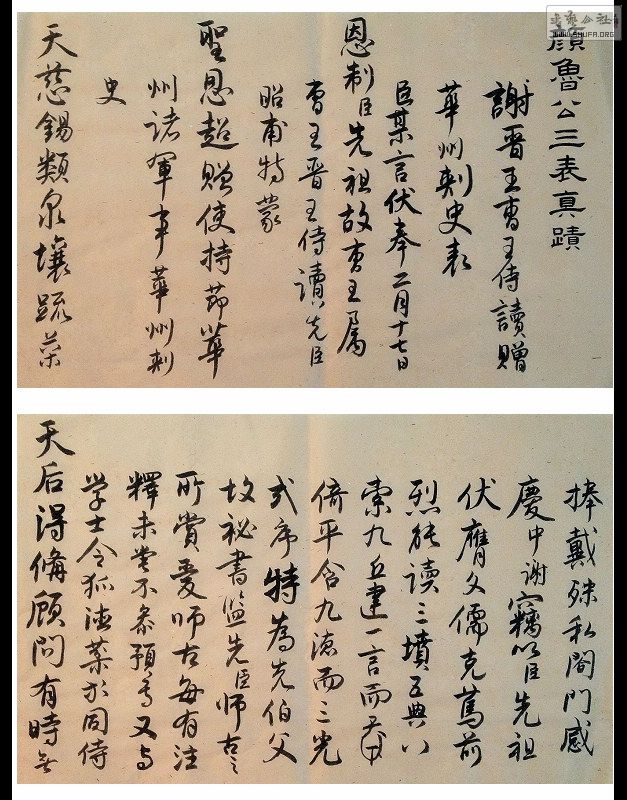 顏魯公三表真蹟
謝晉王曹王侍讀贈
華州刺史表
臣某言伏奉二月十七日
恩制臣先祖故曹王屬
曹王晉王侍讀先臣
昭甫特蒙
聖恩超贈使持節華
州諸軍事華州刺
史
天慈錫類泉壤疏榮
捧戴殊私闔門感
慶中謝竊以臣先祖
伏膺文儒克篤前
烈能读三墳五典八
索九丘建一言而
倚平含九流而三光
式序特為先伯父
故祕書監先臣师古之
所賞愛师古每有注
釋未嘗不參預焉又与
学士令狐德棻等同侍
天后得備顧問有時
書藝公社
WWW.SHUFA.ORG